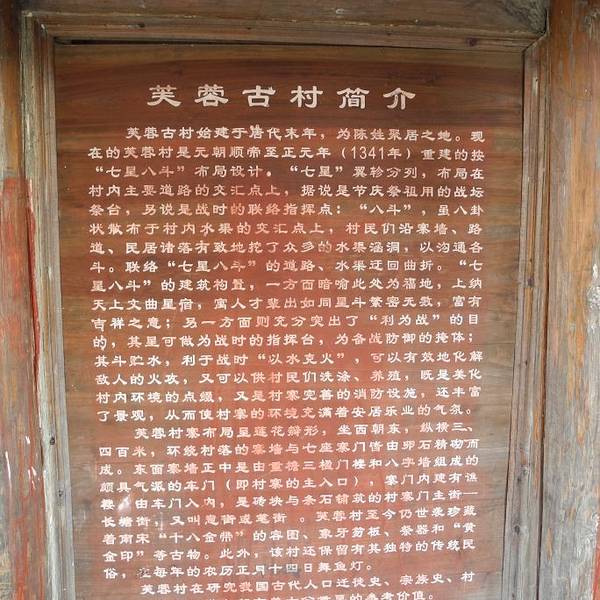 芙蓉古村简介
芙蓉古村始建于唐代末年，为陈姓聚居之地。现
在的芙蓉村是元朝顺帝至正元年（1341年）重建的按
“七星八斗”布局设计。“七星”翼轸分列，布局在
村内主要道路的交汇点上，据说是节庆祭祖用的战坛
祭台，另说是战时的联络指挥点：“八斗”，呈八卦
状散布于村内水渠的交汇点上，村民们沿寨墙、路
道、民居诸落有致地挖了众多的水渠涵洞，以沟通各
斗。联络“七星八斗”的道路、水渠迂回曲折。“七
星八斗”的建筑构置，一方面暗喻此处为福地，上纳
天上文曲星宿，寓人才辈出如同星斗繁密无数，富有
吉祥之意；另一方面则充分突出了“利为战”的目
的，其星可做为战时的指挥台，为备战防御的掩体；
其斗贮水，利于战时“以水克火”，可以有效地化解
敌人的火攻，又可以供村民们洗涤、养殖，既是美化
村内环境的点缀，又是村寨完善的消防设施，还丰富
了景观，从而使村寨的环境充满着安居乐业的气氛。
芙蓉村寨布局呈莲花瓣形，坐西朝东，纵横三、
四百米，环绕村落的寨墙与七座寨门皆由卵石精砌而
成。东面寨墙正中是由重檐三楹门楼和八字墙组成的
颇具气派的车门（即村寨的主入口），寨门内建有谯
楼，由车门入内，是砖块与条石铺筑的村寨门主街—
长塘街，又叫意街或笔街 。芙蓉村至今仍世袭珍藏
着南宋“十八金带”的容图、象牙笏板、祭器和“黄
金印”等古物。此外，该村还保留有其独特的传统民
俗，在每年的农历正月十四日舞鱼灯。
芙蓉村在研究我国古代人口迁徙史、宗族史、村
参考价值。